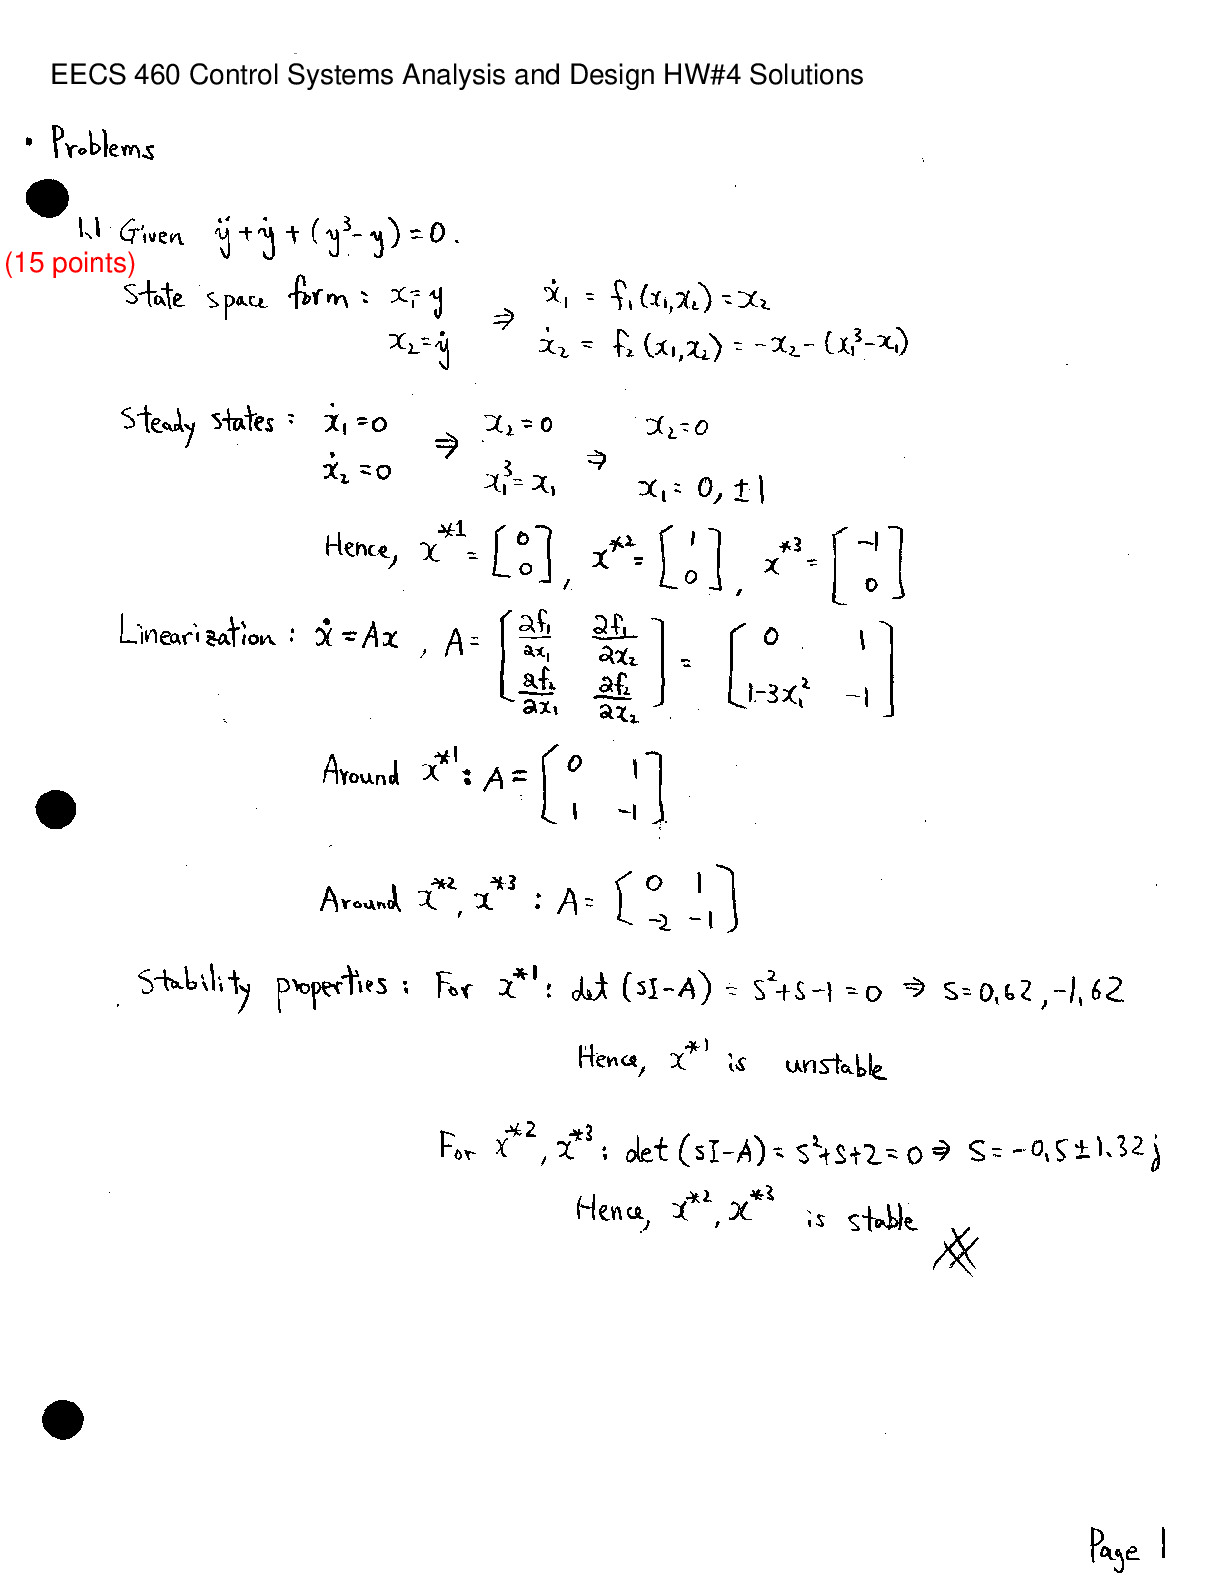 EECS 460 Control Systems Analysis and Design HW#4 Solutions
• Problems
1.1 Given ÿ + ẏ + (y³ - y) = 0.
(15 points)
State space form : x₁ = y ⇒ ẋ₁ = f₁(x₁,x₂) = x₂
x₂ = ẏ ẋ₂ = f₂(x₁,x₂) = -x₂ - (x₁³ - x₁)
Steady states : ẋ₁ = 0 ⇒ x₂ = 0 ⇒ x₂ = 0
ẋ₂ = 0 x₁³ = x₁ x₁ = 0, ±1
Hence, x*¹ = [0 0], x*² = [1 0], x*³ = [-1 0]
Linearization : ẋ = Ax , A = [∂f₁/∂x₁ ∂f₁/∂x₂ ∂f₂/∂x₁ ∂f₂/∂x₂] = [0 1 1-3x₁² -1]
Around x*¹ : A = [0 1 1 -1]
Around x*², x*³ : A = [0 1 -2 -1]
Stability properties : For x*¹ : det (sI-A) = s²+s-1 = 0 ⇒ s = 0.62, -1.62
Hence, x*¹ is unstable
For x*², x*³ : det (sI-A) = s²+s+2 = 0 ⇒ s = -0.5 ± 1.32j
Hence, x*², x*³ is stable
Page 1